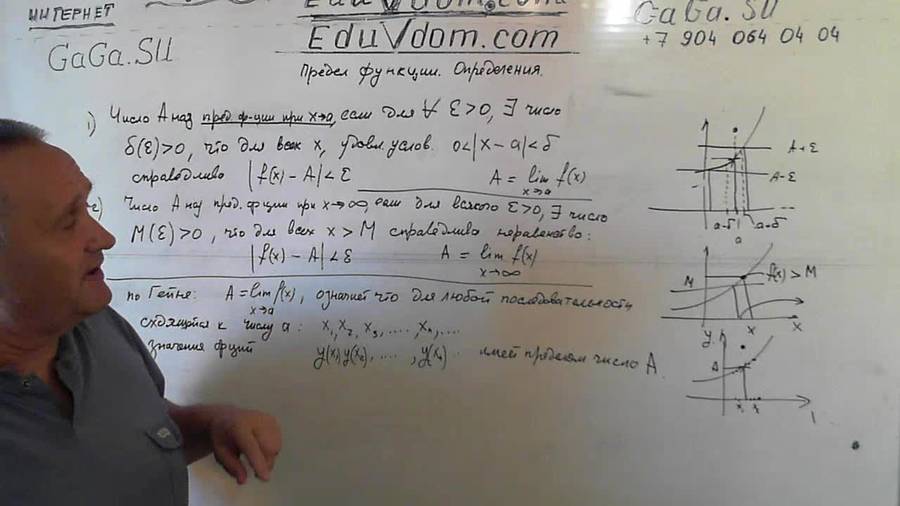 ИНТЕРНЕТ
GaGa.SU
EduVdom.com
EduVdom.com
GaGa.SU
+7 904 064 04 04
Предел функции. Определения.
1) Число A наз пред. ф-ции при x→a, если для ∀ ε>0, ∃ число
δ(ε)>0, что для всех x, удовл. услов. 0<|x-a|<δ
справедливо |f(x)-A|<ε A = lim f(x)
x→a
Число A наз пред. ф-ции при x→∞, если для всякого ε>0, ∃ число
M(ε)>0, что для всех x>M справедливо неравенство:
|f(x)-A|<ε A = lim f(x)
x→∞
по Гейне: A = lim f(x), означает что для любой последовательности
x→a
сходящейся к числу a: x₁, x₂, x₃, ...., xₙ, ....
значения ф-ций y(x₁) y(x₂), ...., y(xₙ) .. имеет пределом число A.
A+ε
A-ε
a-δ a a+δ
M f(x)>M
x x
y
A
x₁